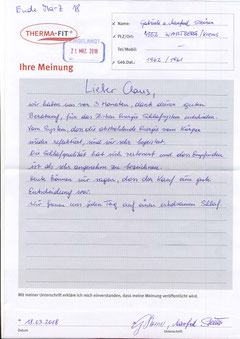 Ende März 18
THERMA-FIT®
EINGELANGT
21. MRZ. 2018
Name:
Gabriele u. Manfred Steiner
PLZ/Ort:
4552 WARTBERG/Krems
Tel/Mobil:
Geb.Dat.:
1962 / 1961
Ihre Meinung
Lieber Claus,
wir haben uns vor 3 Monaten, dank deiner guten
Beratung, für das Schlafsystem entschieden.
Vom System, dass die abstrahlende Energie vom Körper
wieder reflektiert, sind wir sehr begeistert.
Die Schlafqualität hat sich verbessert und das Empfinden
ist als sehr angenehm zu bezeichnen.
Heute können wir sagen, dass der Kauf eine gute
Entscheidung war.
Wir freuen uns jeden Tag auf einen erholsamen Schlaf
Mit meiner Unterschrift erkläre ich mich einverstanden, dass meine Meinung veröffentlicht wird.
18.03.2018
Manfred
Datum
Unterschrift